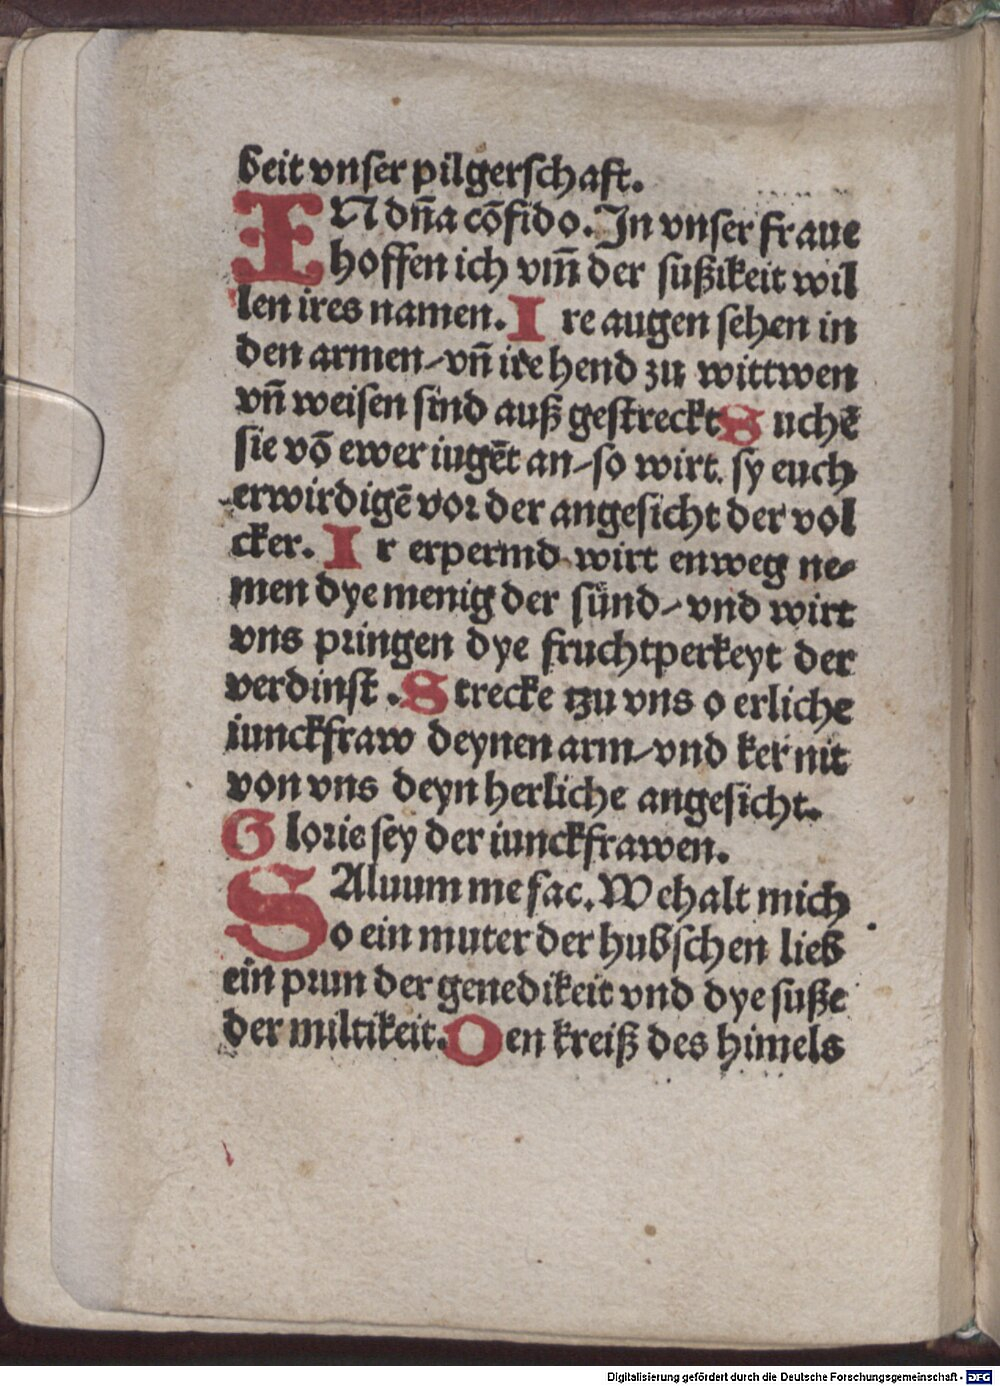 beit vnser pilgerschaft.
IN dn̄a cōfido. In vnser fraue
hoffen ich vm̄ der sußikeit wil
len ires namen. Ire augen sehen in
den armen/ vn̄ ire hend zu wittwen
vn̄ weisen sind auß gestreckt Suchē
sie vō ewer iugēt an/ so wirt sy euch
erwirdigē vor der angesicht der vol
cker. Ir erpermd wirt enweg ne⸗
men dye menig der sünd/ vnd wirt
vns pringen dye fruchtperkeyt der
verdinst. Strecke tzu vns o erliche
iunckfraw deynen arm/ vnd ker nit
von vns deyn herliche angesicht.
Glorie sey der iunckfrawen.
SAluum me fac. Wehalt mich
o ein muter der hubschen lieb
ein prun der genedikeit vnd dye suße
der miltikeit. Den kreiß des himels
Digitalisierung gefördert durch die Deutsche Forschungsgemeinschaft - DFG